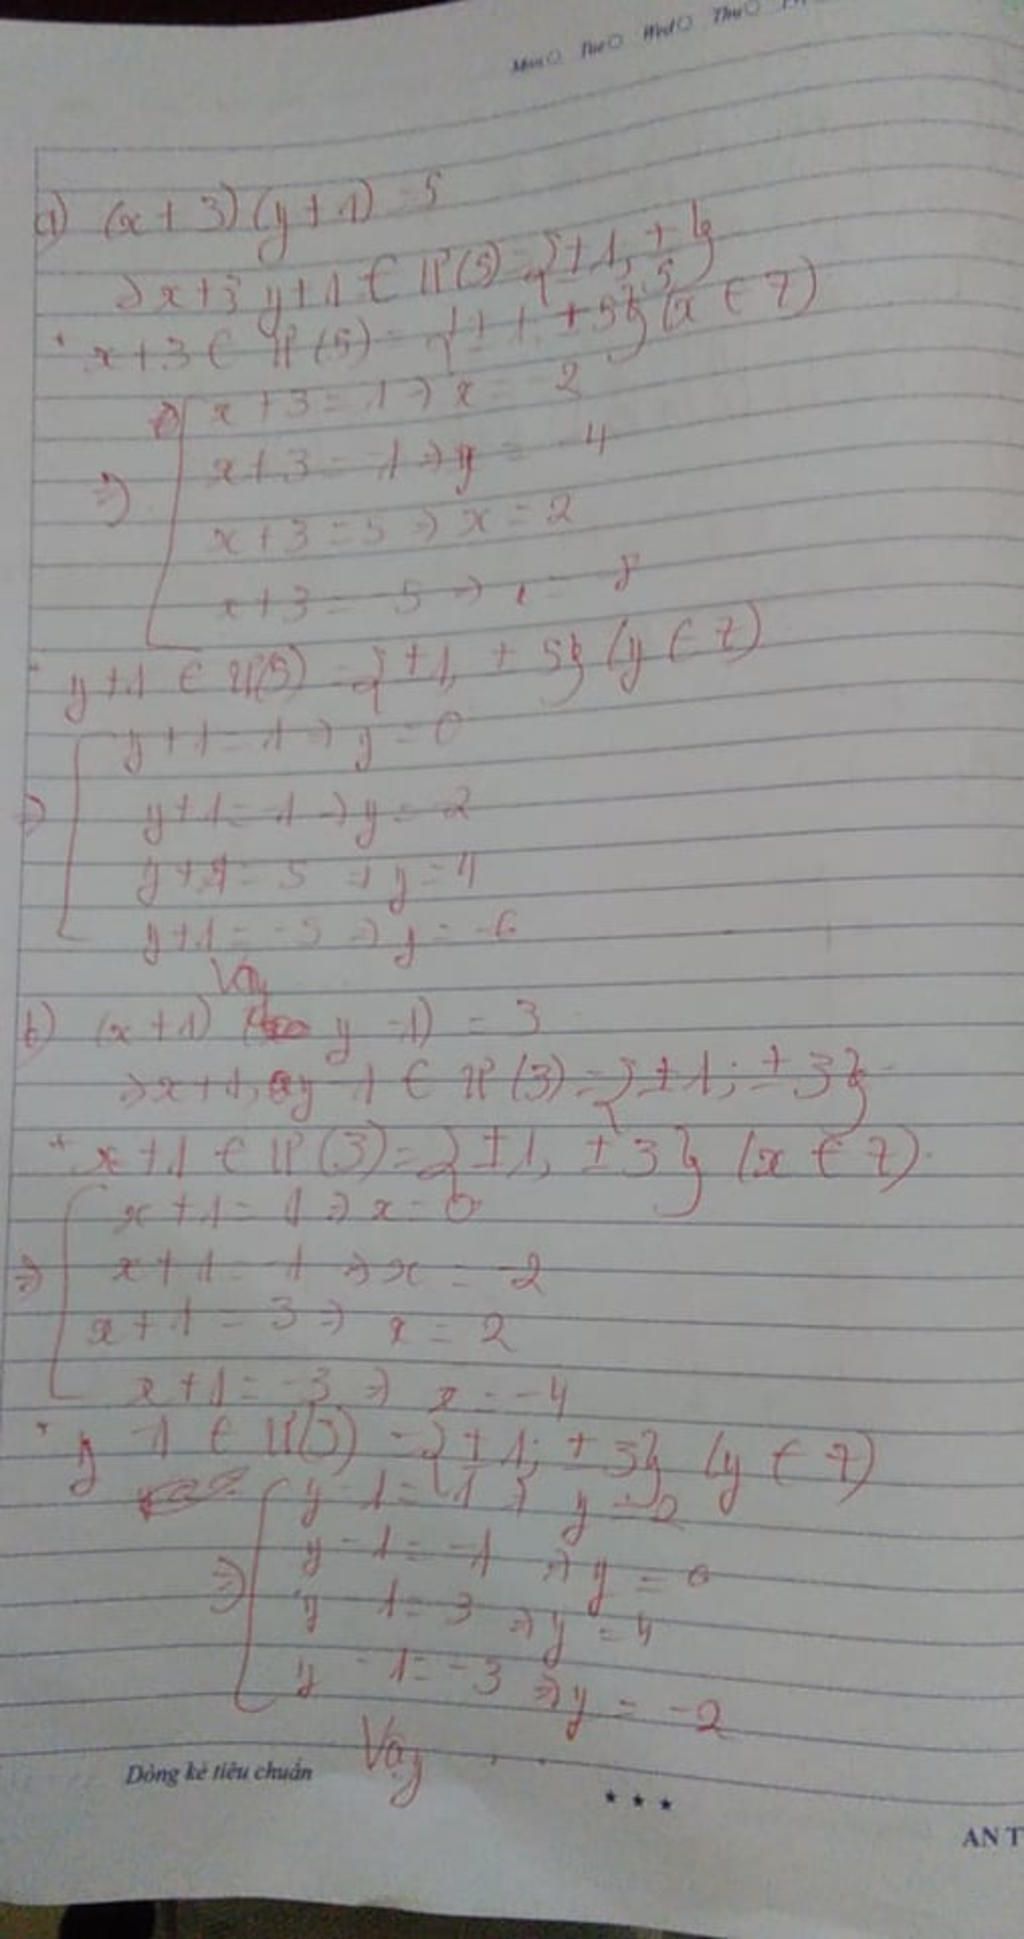 a) (x + 3)(y + 1) = 5
⇒ x + 3 y + 1 ∈ Ư(5) = {±1, ±5}
* x + 3 ∈ Ư(5) = {±1, ±5} (x ∈ Z)
x + 3 = 1 ⇒ x = -2
⇒ x + 3 = -1 ⇒ x = -4
x + 3 = 5 ⇒ x = 2
x + 3 = -5 ⇒ x = -8
* y + 1 ∈ Ư(5) = {±1, ±5} (y ∈ Z)
y + 1 = 1 ⇒ y = 0
⇒ y + 1 = -1 ⇒ y = -2
y + 1 = 5 ⇒ y = 4
y + 1 = -5 ⇒ y = -6
Vậy
b) (x + 1) (y - 1) = 3
⇒ x + 1, y - 1 ∈ Ư(3) = {±1; ±3}
* x + 1 ∈ Ư(3) = {±1, ±3} (x ∈ Z)
x + 1 = 1 ⇒ x = 0
⇒ x + 1 = -1 ⇒ x = -2
x + 1 = 3 ⇒ x = 2
x + 1 = -3 ⇒ x = -4
* y - 1 ∈ Ư(3) = {±1; ±3} (y ∈ Z)
y - 1 = 1 ⇒ y = 2
y - 1 = -1 ⇒ y = 0
⇒ y - 1 = 3 ⇒ y = 4
y - 1 = -3 ⇒ y = -2
Vậy
Dòng kẻ tiêu chuẩn
★ ★ ★
AN T